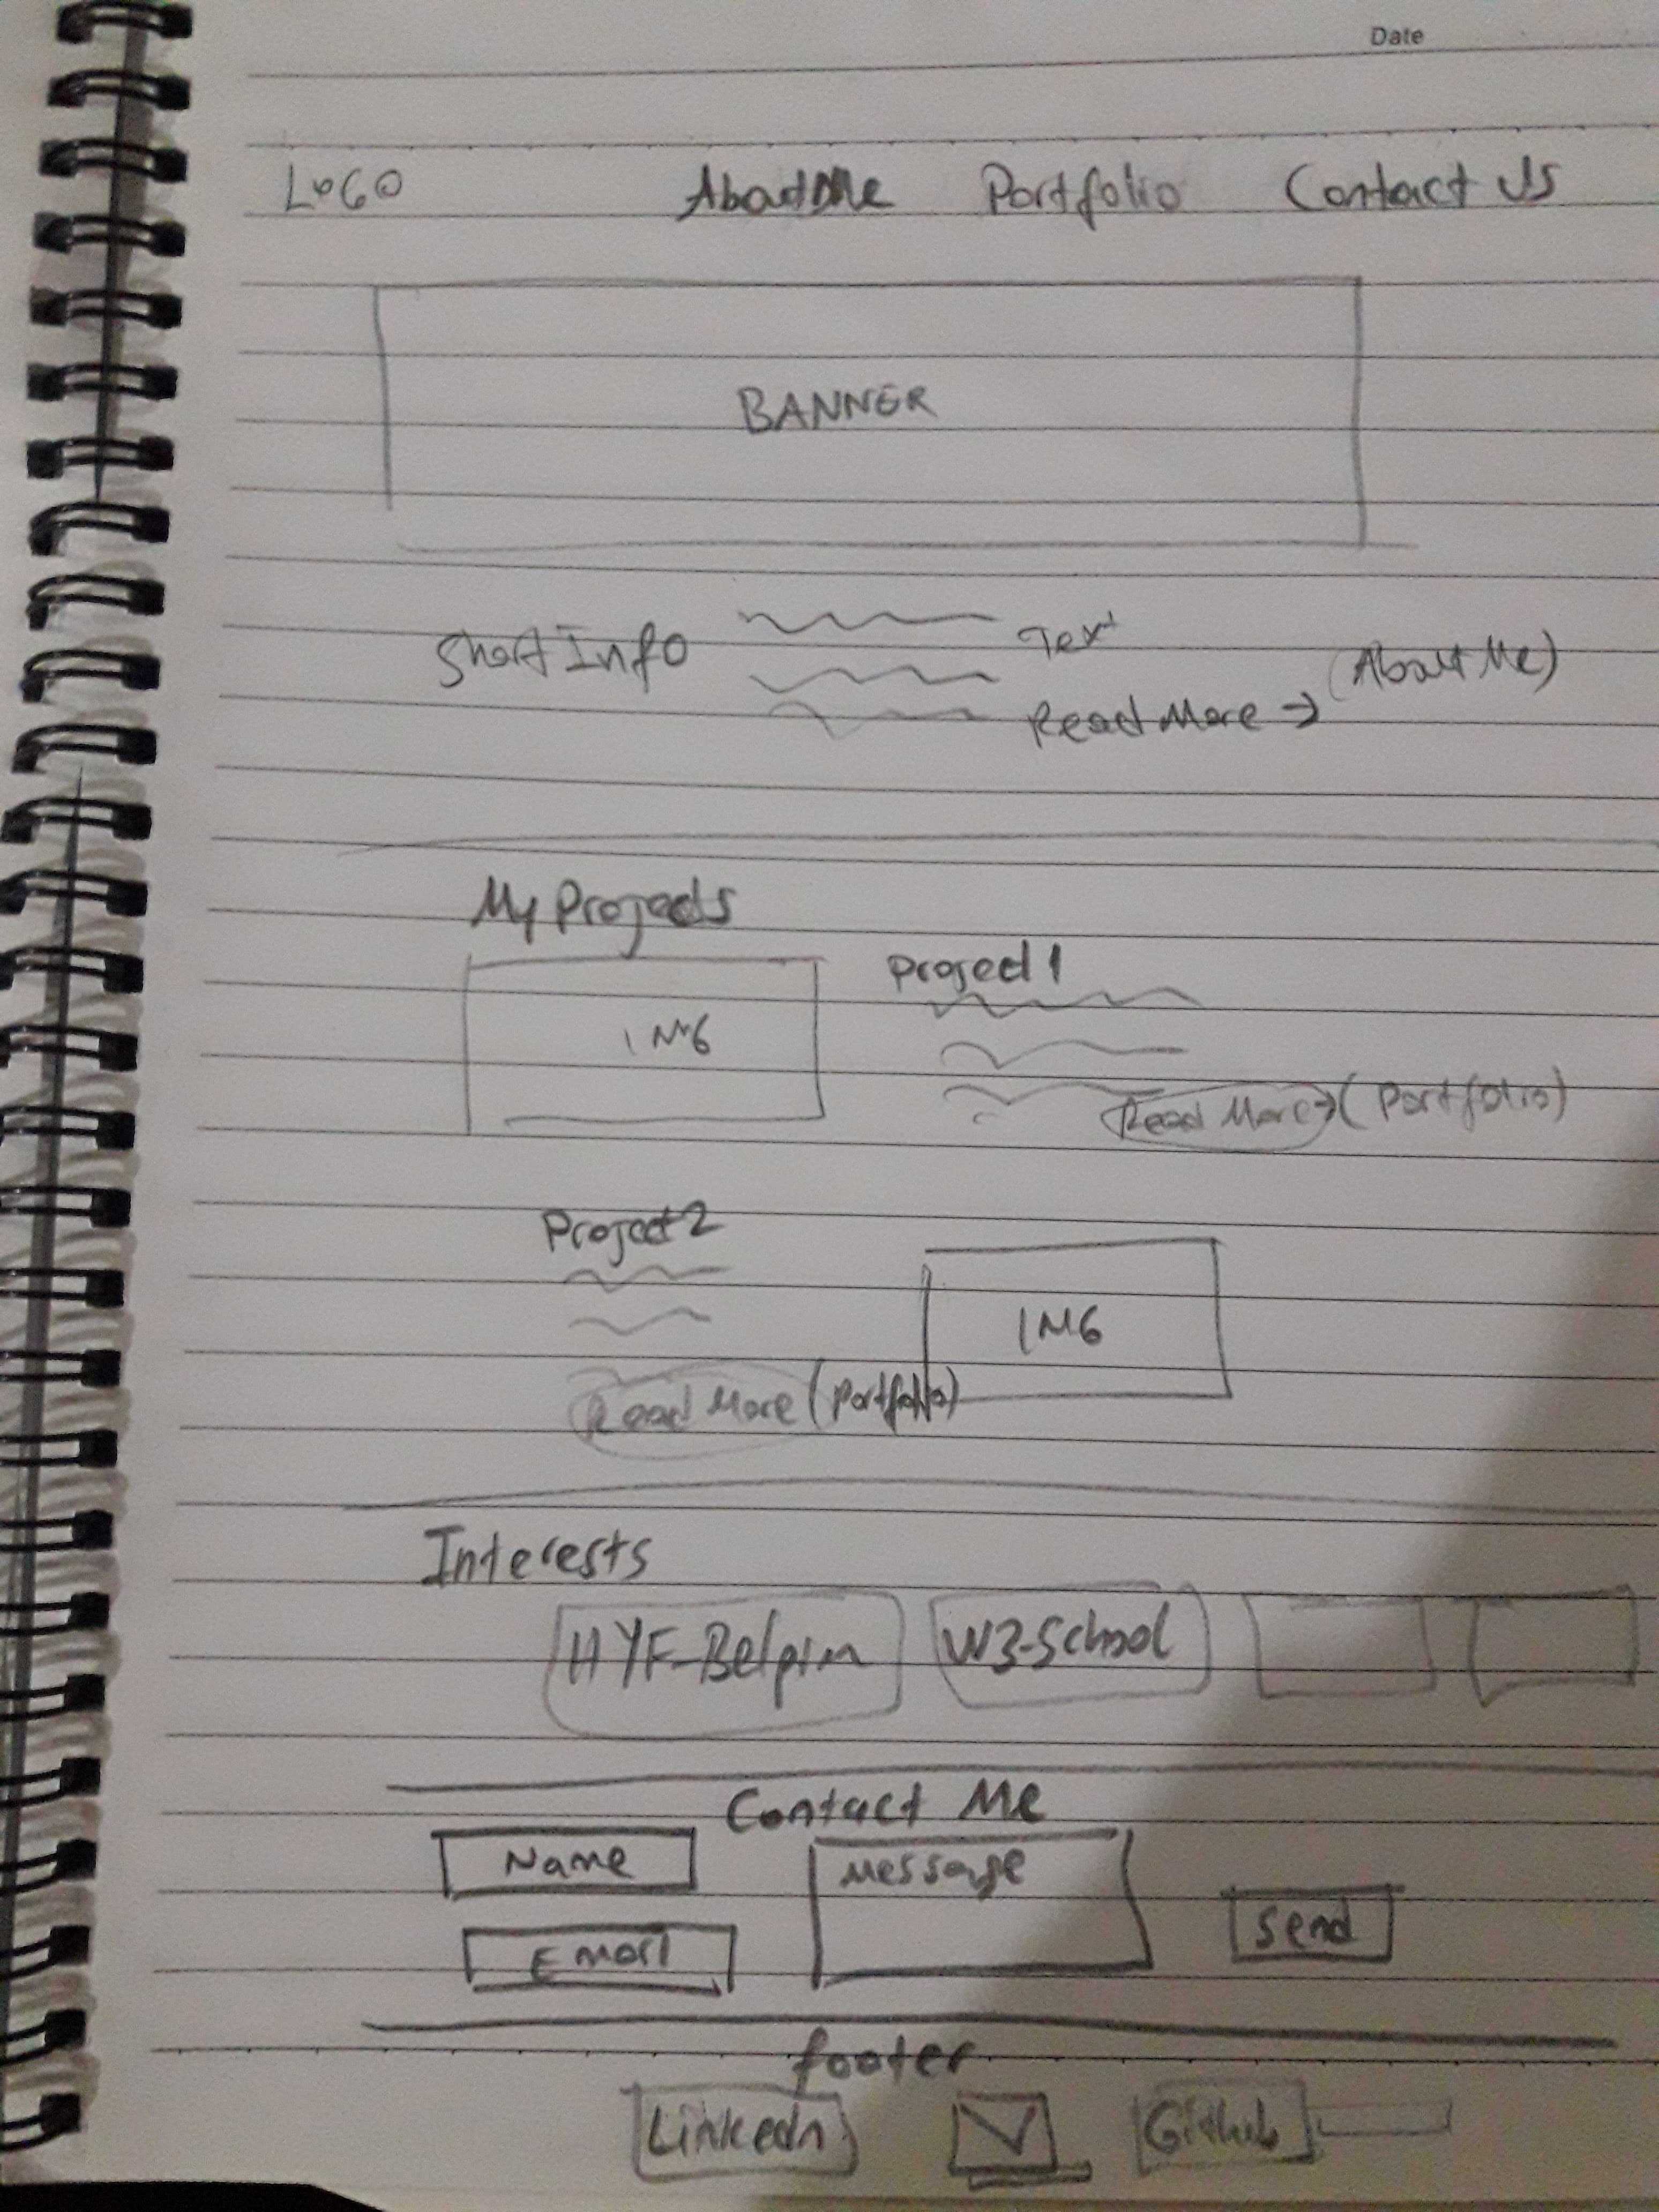 Date
LOGO About Me Portfolio Contact Us
BANNER
Short Info Text
Read More → (About Me)
My Projects
IMG Project 1
Read More → (Portfolio)
Project 2
IMG
Read More (Portfolio)
Interests
HYF-Belgium W3-School
Contact Me
Name Message
Email Send
footer
Linkedn Github